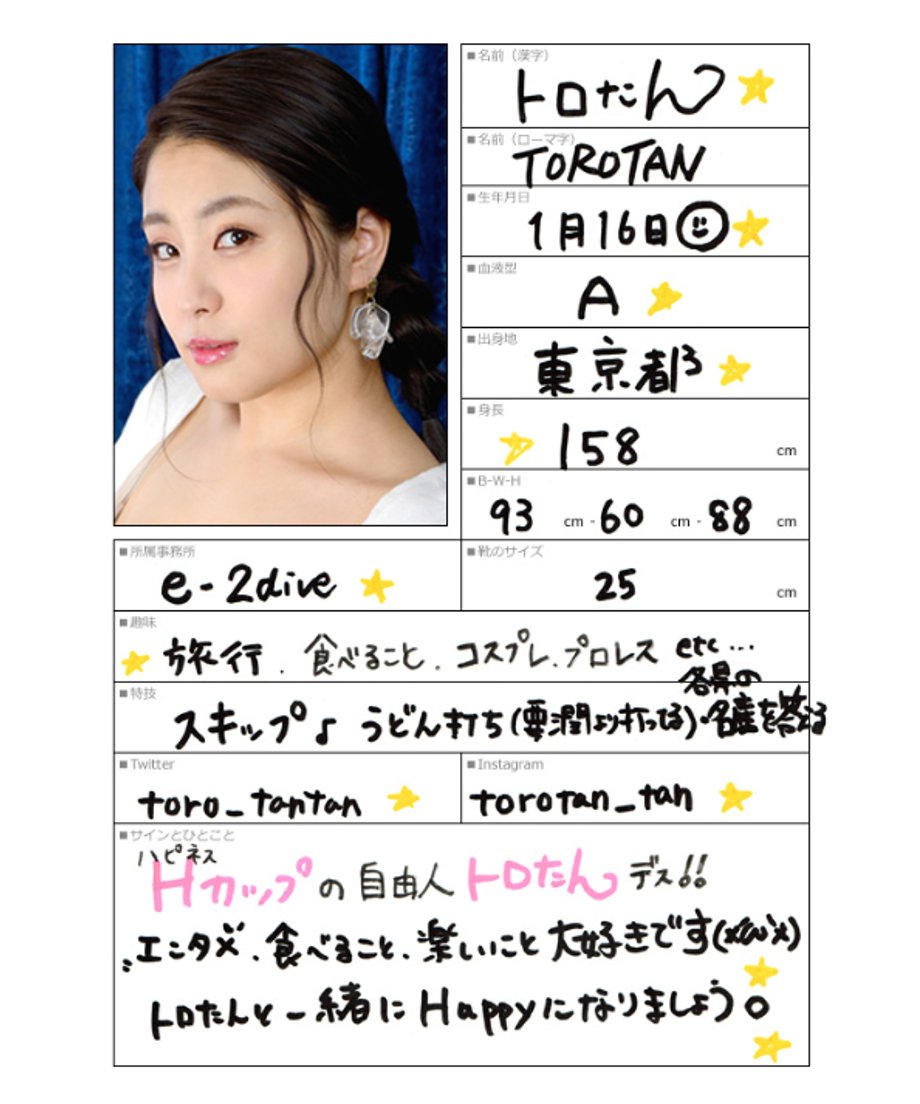 ■名前（漢字）
トロたん
■名前（ローマ字）
TOROTAN
■生年月日
1月16日
■血液型
A
■出身地
東京都
■身長
158 cm
■B-W-H
93 cm - 60 cm - 88 cm
■所属事務所
e-2dive
■靴のサイズ
25 cm
■趣味
旅行、食べること、コスプレ、プロレス etc…
■特技
スキップ♪ うどん打ち(要潤より打ってる)・各県の名産を答える
■Twitter
toro_tantan
■Instagram
torotan_tan
■サインとひとこと
ハピネス
Hカップの自由人トロたんデス!!
エンタメ、食べること、楽しいこと大好きです(*'ω'*)
トロたんと一緒にHappyになりましょう。